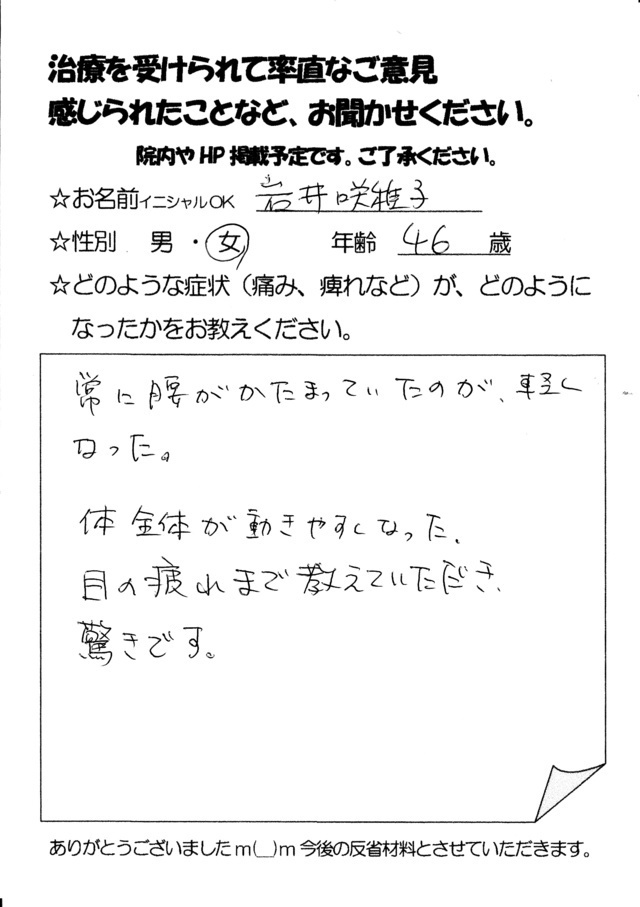 治療を受けられて率直なご意見
感じられたことなど、お聞かせください。
院内やHP掲載予定です。ご了承ください。
☆お名前イニシャルOK 岩井咲雅子
☆性別 男・女 年齢 46 歳
☆どのような症状（痛み、痺れなど）が、どのように
なったかをお教えください。
常に腰がかたまっていたのが、軽く
なった。
体全体が動きやすくなった、
目の疲れまで教えていただき、
驚きです。
ありがとうございましたm(__)m今後の反省材料とさせていただきます。